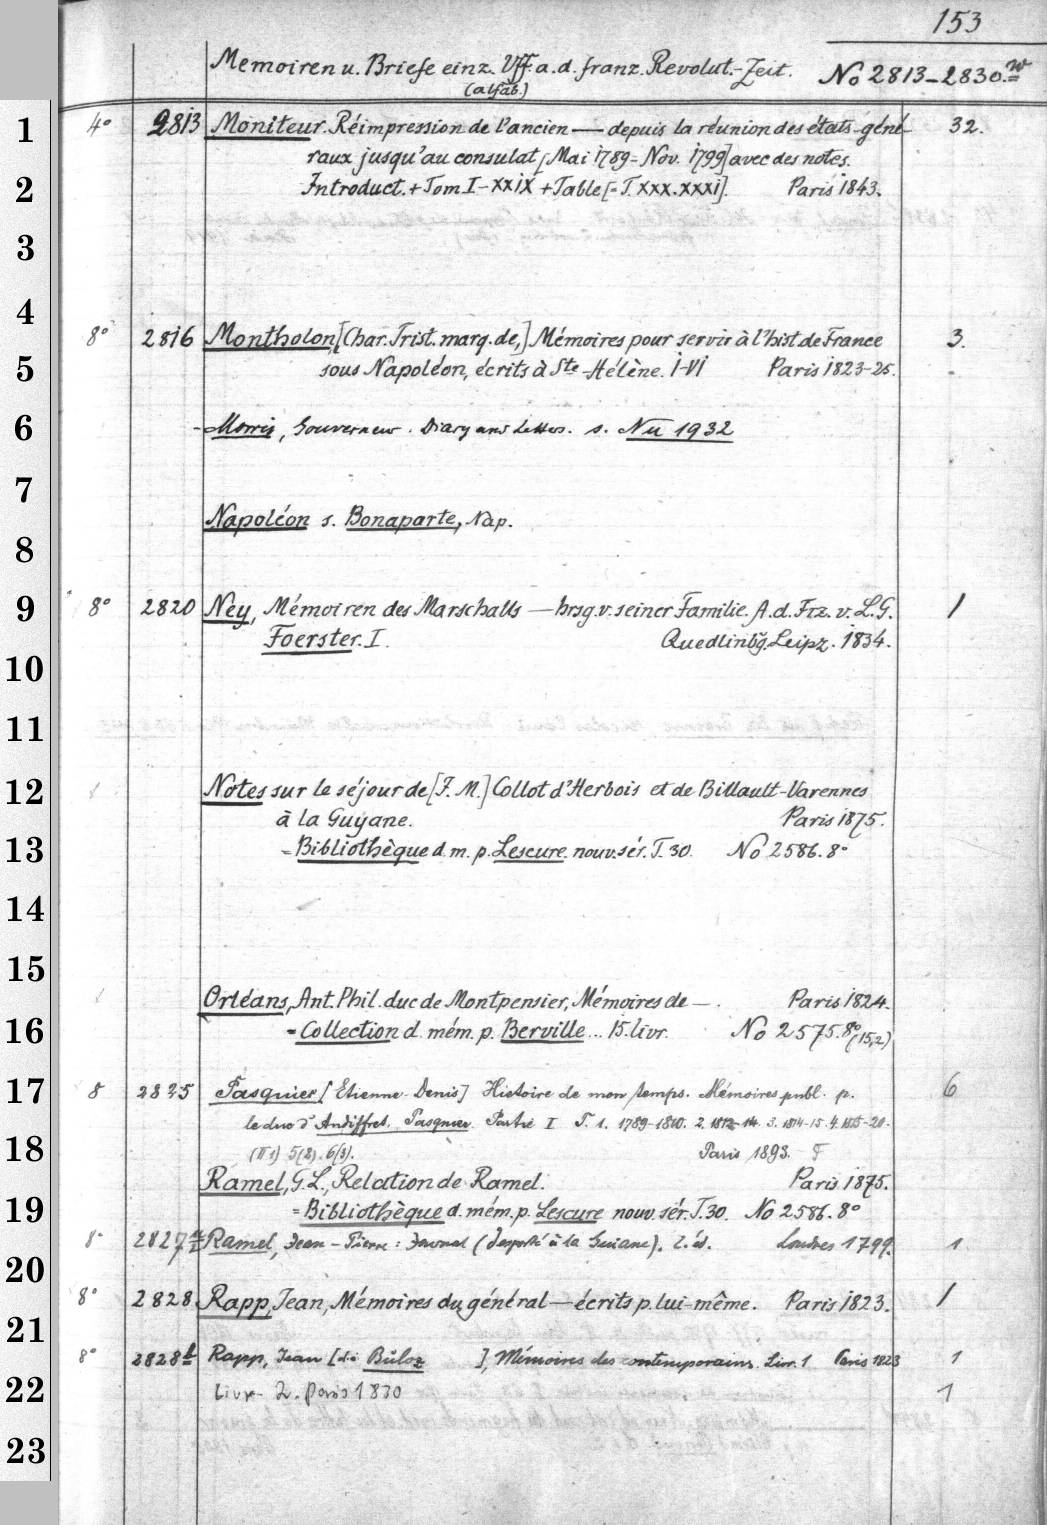 153
Memoiren u. Briefe einz. Vff. a. d. franz. Revolut.-Zeit. No 2813-2830.w
(alfab.)
1 4° 2813 Moniteur. Réimpression de l'ancien — depuis la réunion des états-géné- 32.
raux jusqu'au consulat [Mai 1789-Nov. 1799] avec des notes.
2 Introduct. + Tom I-XXIX + Table [= T. XXX. XXXI]. Paris 1843.
3
4
8° 2816 Montholon, [Char. Trist. marq. de,] Mémoires pour servir à l'hist. de France 3.
5 sous Napoléon, écrits à Ste-Hélène. I-VI Paris 1823-25.
6 - Morris, Gouverneur. Diary and Letters. s. Nu 1932
7
Napoléon s. Bonaparte, Nap.
8
9 8° 2820 Ney, Mémoiren des Marschalls — hrsg. v. seiner Familie. A. d. Frz. v. L. G. 1
Foerster. I. Quedlinbg. Leipz. 1834.
10
11
12 Notes sur le séjour de [J. M.] Collot d'Herbois et de Billault-Varennes
à la Guyane. Paris 1875.
13 = Bibliothèque d. m. p. Lescure. nouv. sér. T. 30. No 2586. 8°
14
15
Orléans, Ant. Phil. duc de Montpensier, Mémoires de —. Paris 1824.
16 = Collection d. mém. p. Berville ... 15. livr. No 2575. 8° (15,2)
17 8 2825 Pasquier [Etienne-Denis] Histoire de mon temps. Mémoires publ. p. 6
le duc d'Audiffret-Pasquier. Partie I T. 1. 1789-1810. 2. 1812-14. 3. 1814-15. 4. 1815-20.
18 (II 1) 5(2). 6(3). Paris 1893. F
Ramel, G. L., Relation de Ramel. Paris 1875.
19 = Bibliothèque d. mém. p. Lescure nouv. sér. T. 30. No 2586. 8°
8° 2827 Ramel, Jean-Pierre: Journal (déporté à la Guiane). 2. éd. Londres 1799. 1.
20
8° 2828 Rapp, Jean, Mémoires du général — écrits p. lui-même. Paris 1823. 1
21
8° 2828b Rapp, Jean [di Buloz ], Mémoires des contemporains. Livr. 1 Paris 1823 1
22 Livr. 2. Paris 1830 1
23